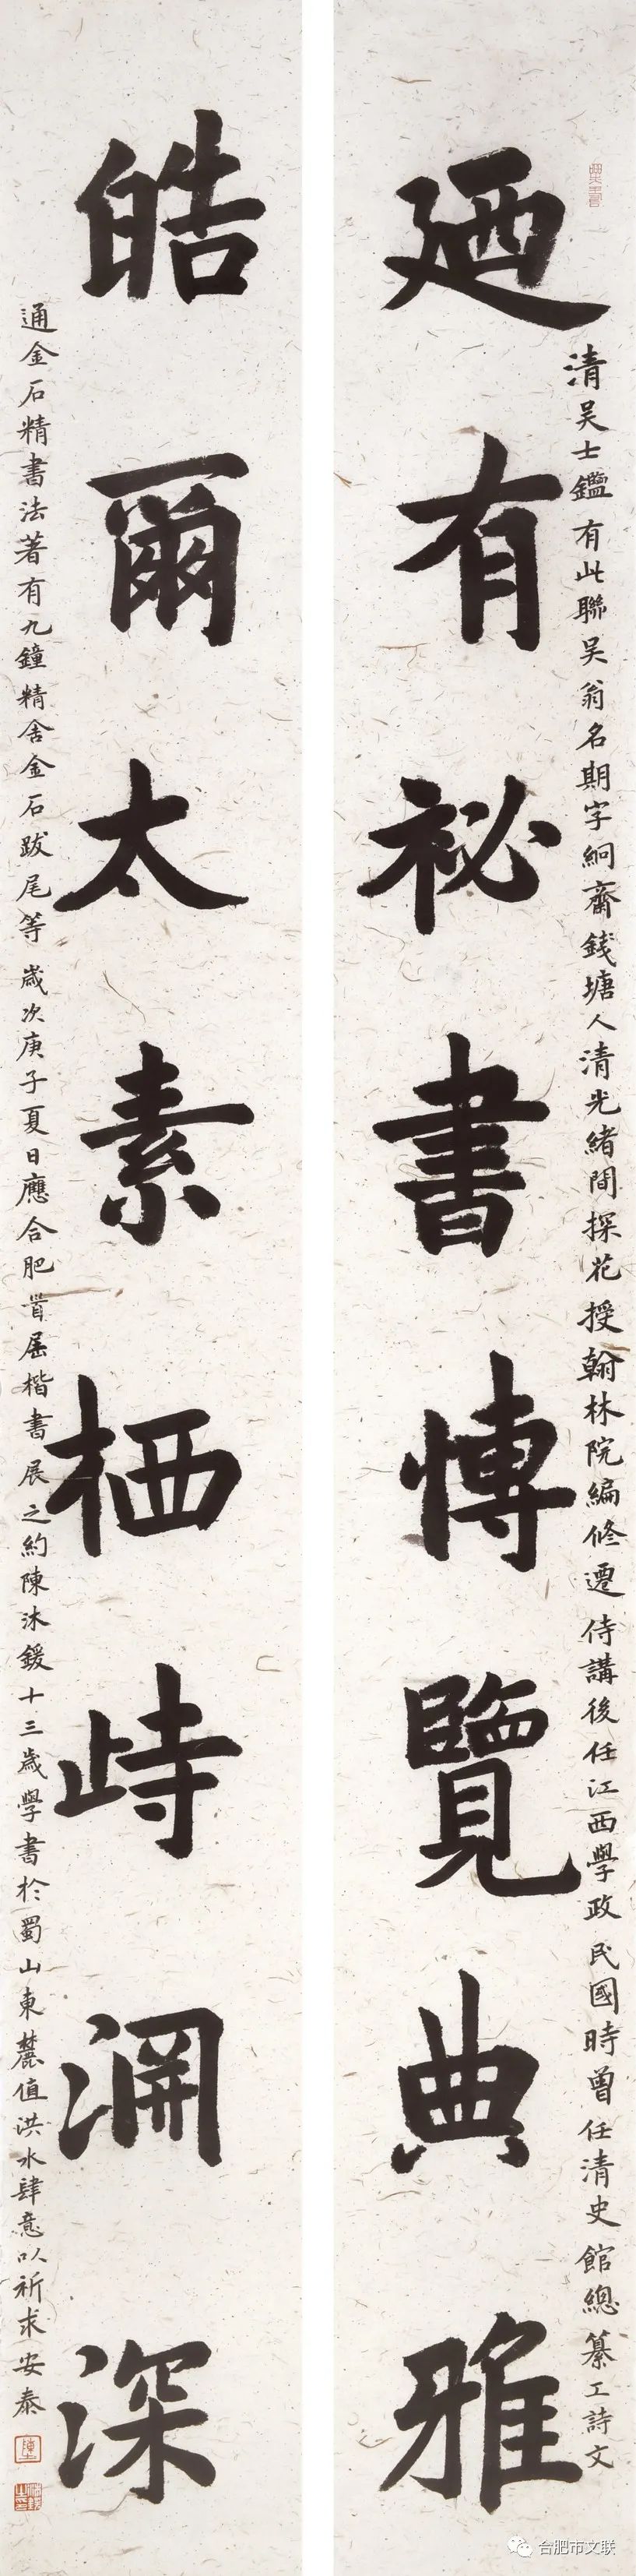 廼有祕書博覽典雅
清吴士鑑有此聯吴翁名期字絅齋錢塘人清光緒間探花授翰林院編修遷侍講後任江西學政民國時曾任清史館總纂工詩文
皓爾太素栖峙淵深
通金石精書法著有九鐘精舍金石跋尾等歲次庚子夏日應合肥首屆楷書展之約陳沐鍰十三歲學書於蜀山東麓值洪水肆意以祈求安泰
合肥市文联